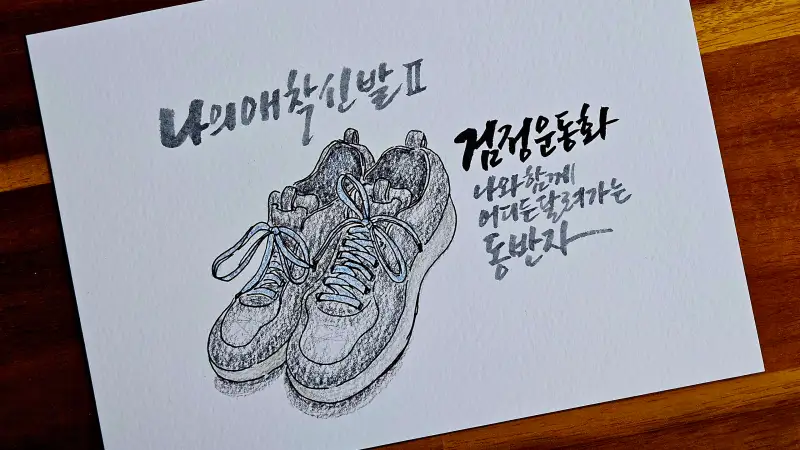 나의 애착신발 Ⅱ
검정운동화
나와 함께
어디든 달려가는
동반자